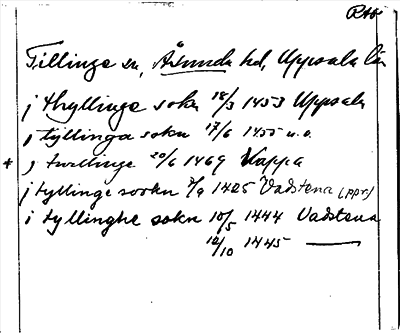 RAÖ
Tillinge sn, Åsunda hd, Uppsala län
j thyllinge sokn 18/3 1453 Uppsala
j tyllinga sokn 17/6 1455 u.o.
* j twllinge 20/6 1469 Kappa
j tyllinge sockn 7/9 1485 Vadstena (ppr)
i tyllinghe sokn 10/5 1444 Vadstena
12/10 1445 —